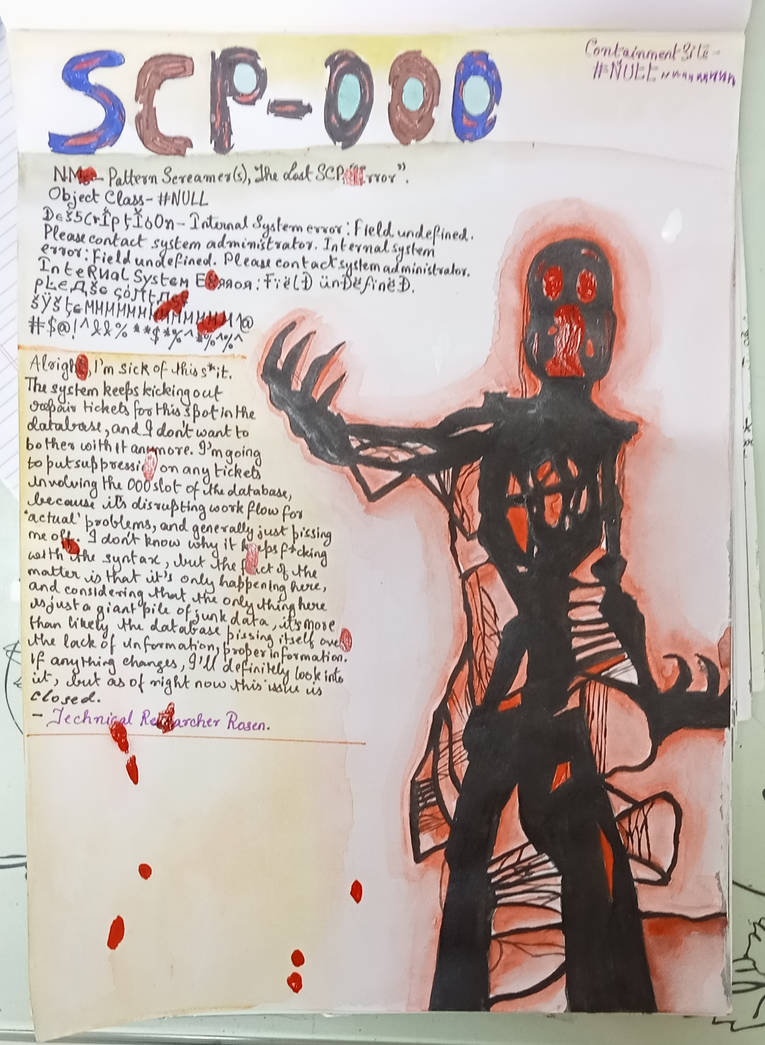 SCP-000
Containment Site-
#NULL
Pattern Screamer(s), The Lost SCP "Error".
Object Class- #NULL
DeŠ5CrÎpţÏbOn- Internal System error: Field undefined.
Please contact system administrator. Internal system
error: Field undefined. Please contact system administrator.
InteRИal SysteM EЯЯoЯ: FïelD ünDëfinëD.
Alright, I'm sick of this s*it.
The system keeps kicking out
repair tickets for this spot in the
database, and I don't want to
bother with it anymore. I'm going
to put suppression on any tickets
involving the 000 slot of the database,
because it's disrupting work flow for
'actual' problems, and generally just pissing
me off. I don't know why it keeps f*cking
with the syntax, but the fact of the
matter is that it's only happening here,
and considering that the only thing here
is just a giant pile of junk data, it's more
than likely the database pissing itself over
the lack of information, proper information.
If anything changes, I'll definitely look into
it, but as of right now this issue is
closed.
- Technical Researcher Rosen.